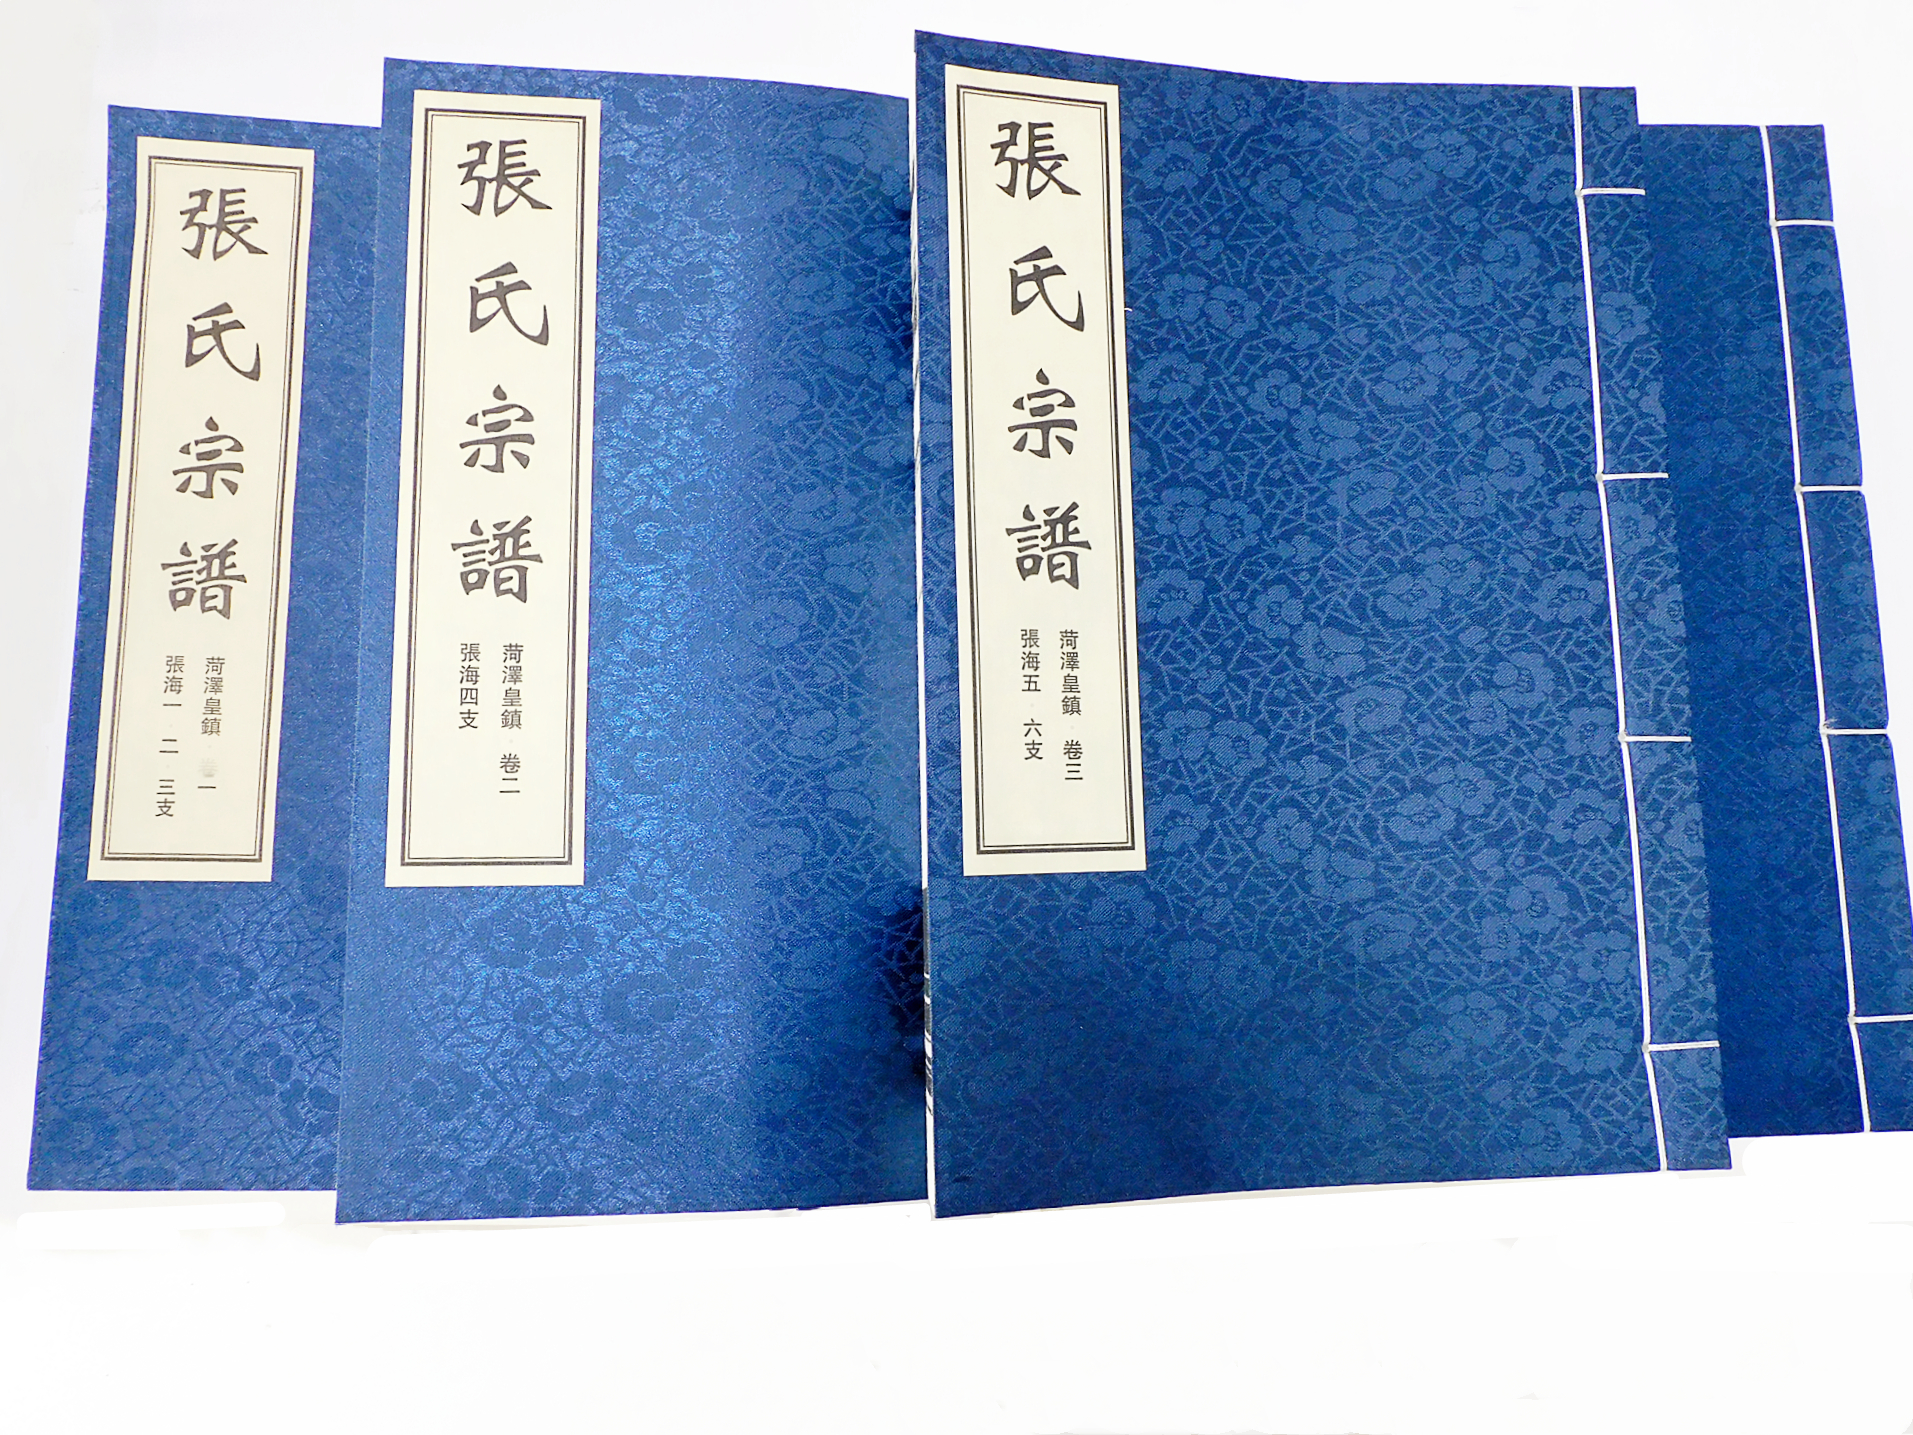 張氏宗譜
菏澤皇鎮·卷一
張海一·二·三支
張氏宗譜
菏澤皇鎮·卷二
張海四支
張氏宗譜
菏澤皇鎮·卷三
張海五·六支